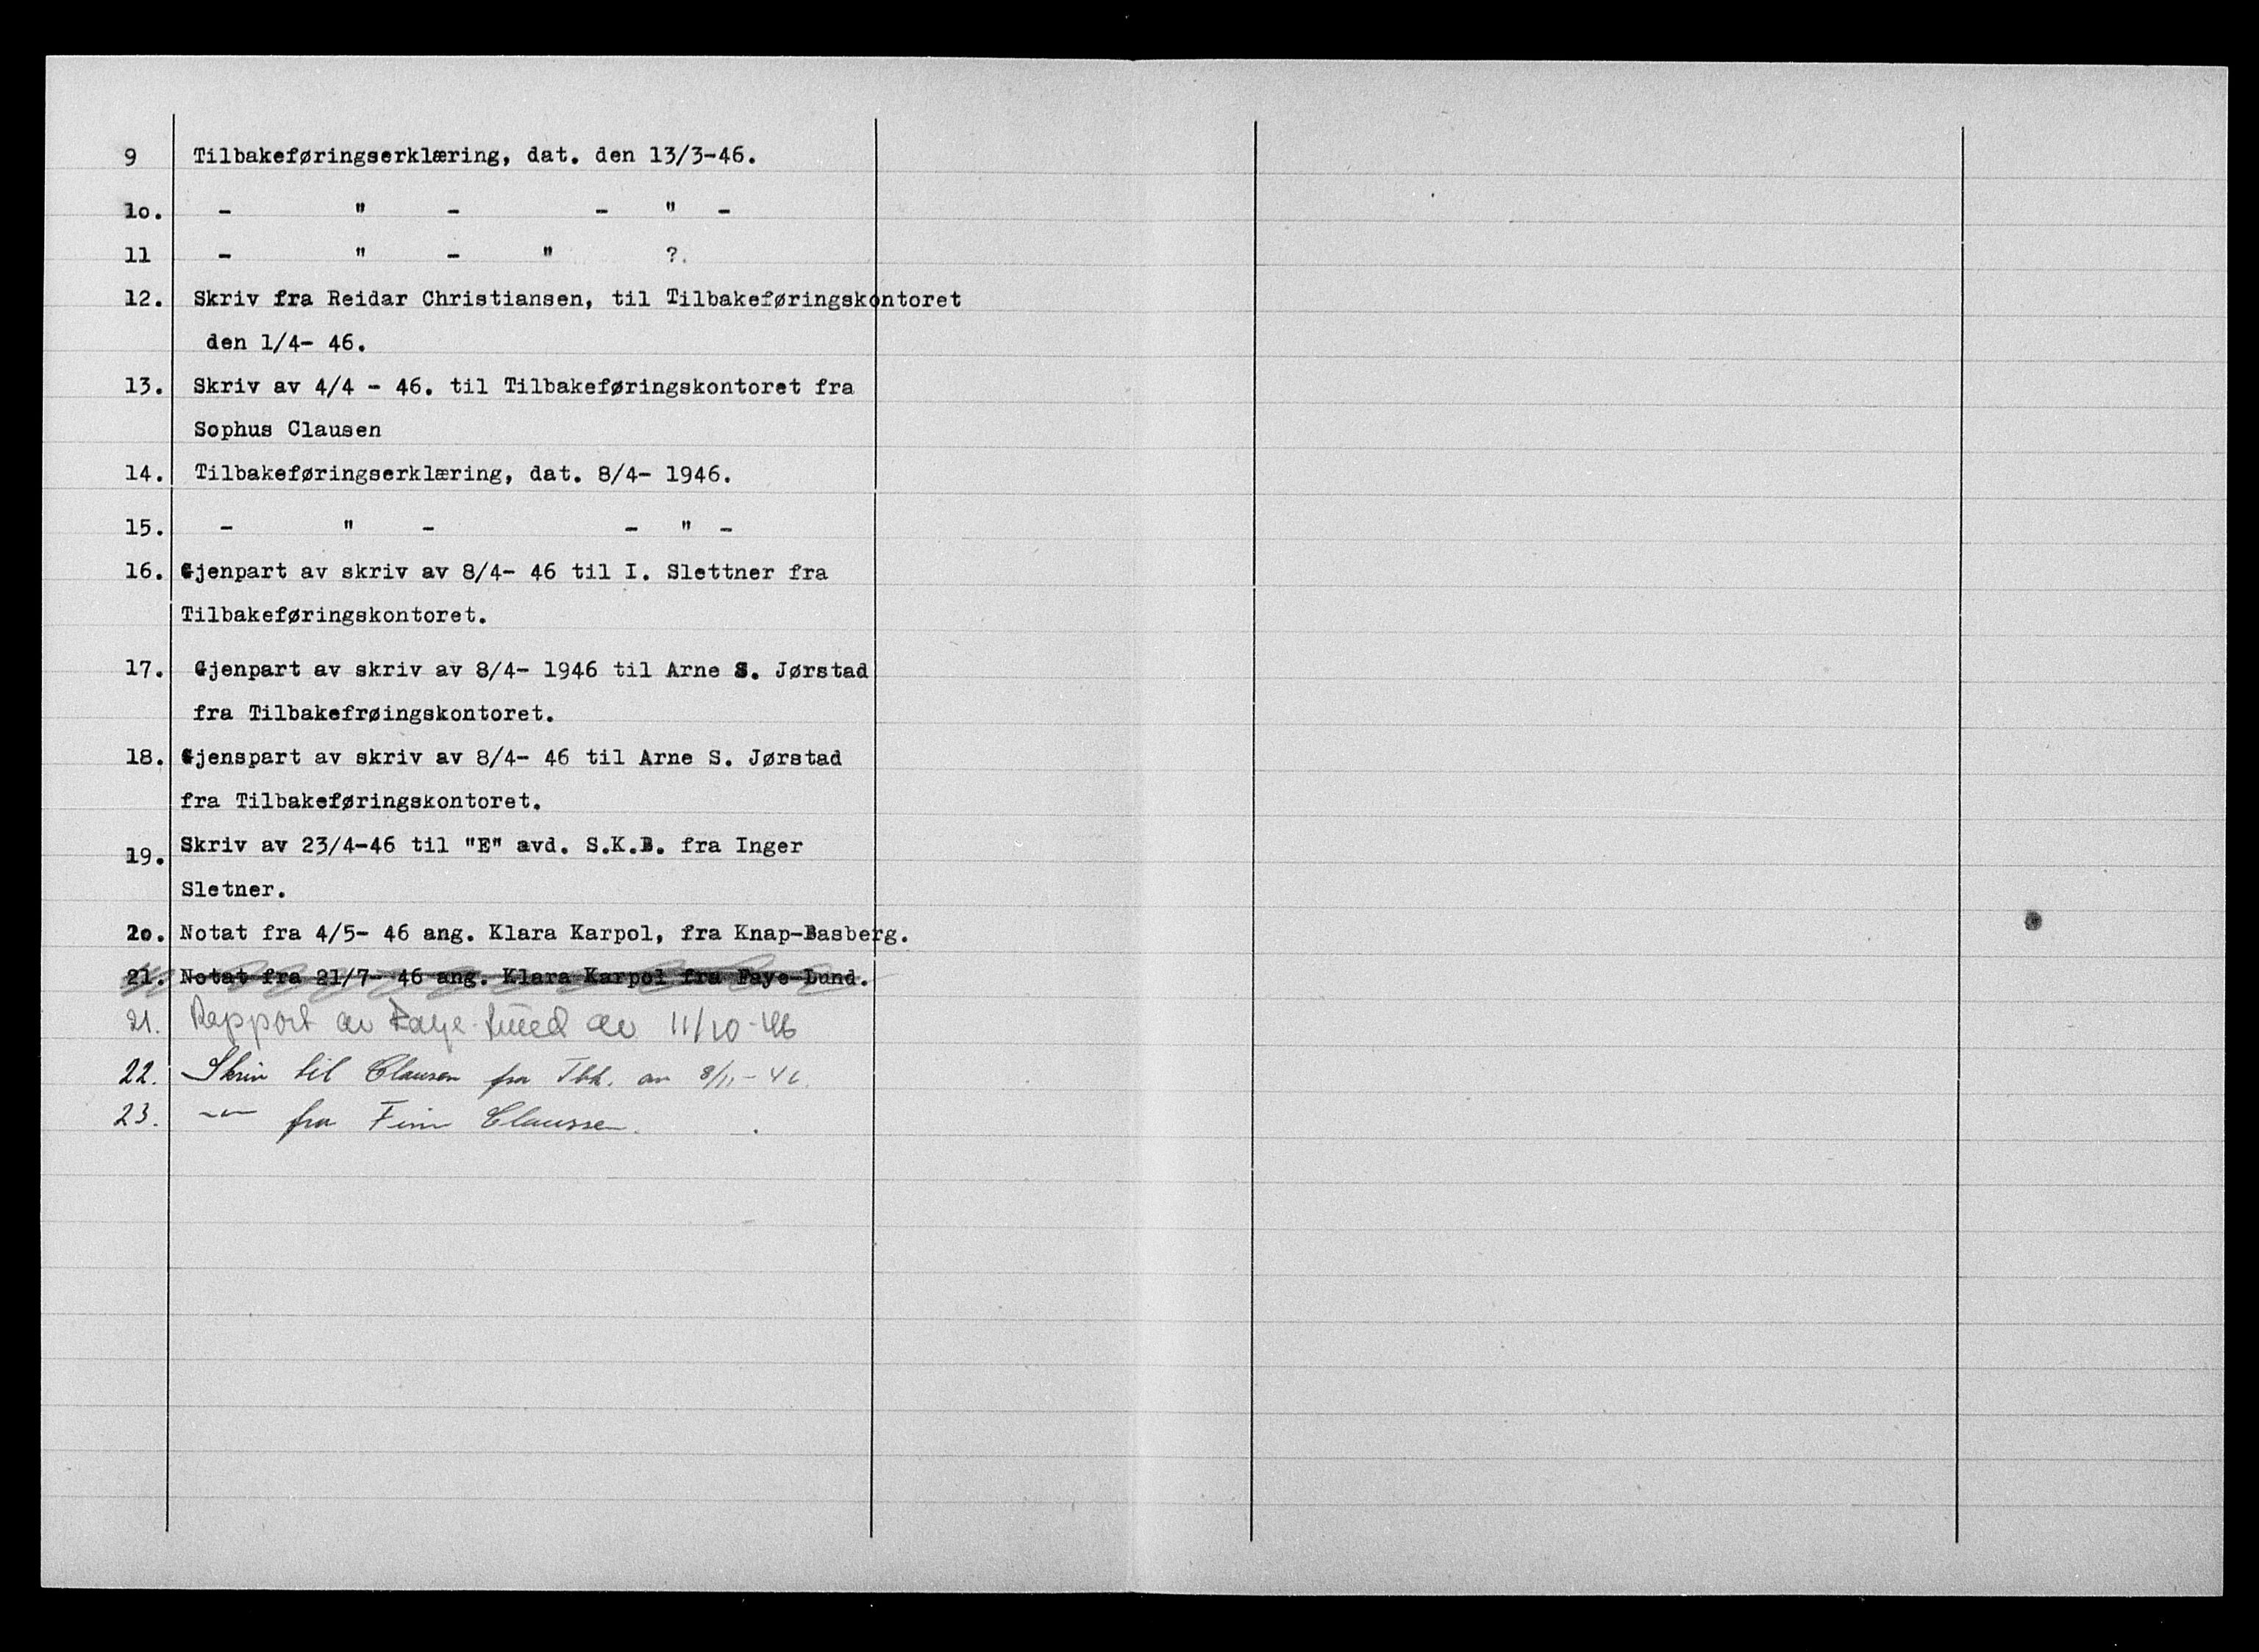 9 Tilbakeføringserklæring, dat. den 13/3-46.
1o. - " - - " -
11 - " - " ?.
12. Skriv fra Reidar Christiansen, til Tilbakeføringskontoret
den 1/4- 46.
13. Skriv av 4/4 - 46. til Tilbakeføringskontoret fra
Sophus Clausen
14. Tilbakeføringserklæring, dat. 8/4- 1946.
15. - " - - " -
16. Gjenpart av skriv av 8/4- 46 til I. Slettner fra
Tilbakeføringskontoret.
17. Gjenpart av skriv av 8/4- 1946 til Arne S. Jørstad
fra Tilbakefrøingskontoret.
18. Gjenspart av skriv av 8/4- 46 til Arne S. Jørstad
fra Tilbakeføringskontoret.
19. Skriv av 23/4-46 til "E" avd. S.K.B. fra Inger
Sletner.
2o. Notat fra 4/5- 46 ang. Klara Karpol, fra Knap-Basberg.
21. Notat fra 21/7- 46 ang. Klara Karpol fra Faye-Lund.
21. Rapport av Faye-Lund av 11/10-46
22. Skriv til Clausen fra Tbk. av 8/11-46.
23. -"- fra Finn Claussen.